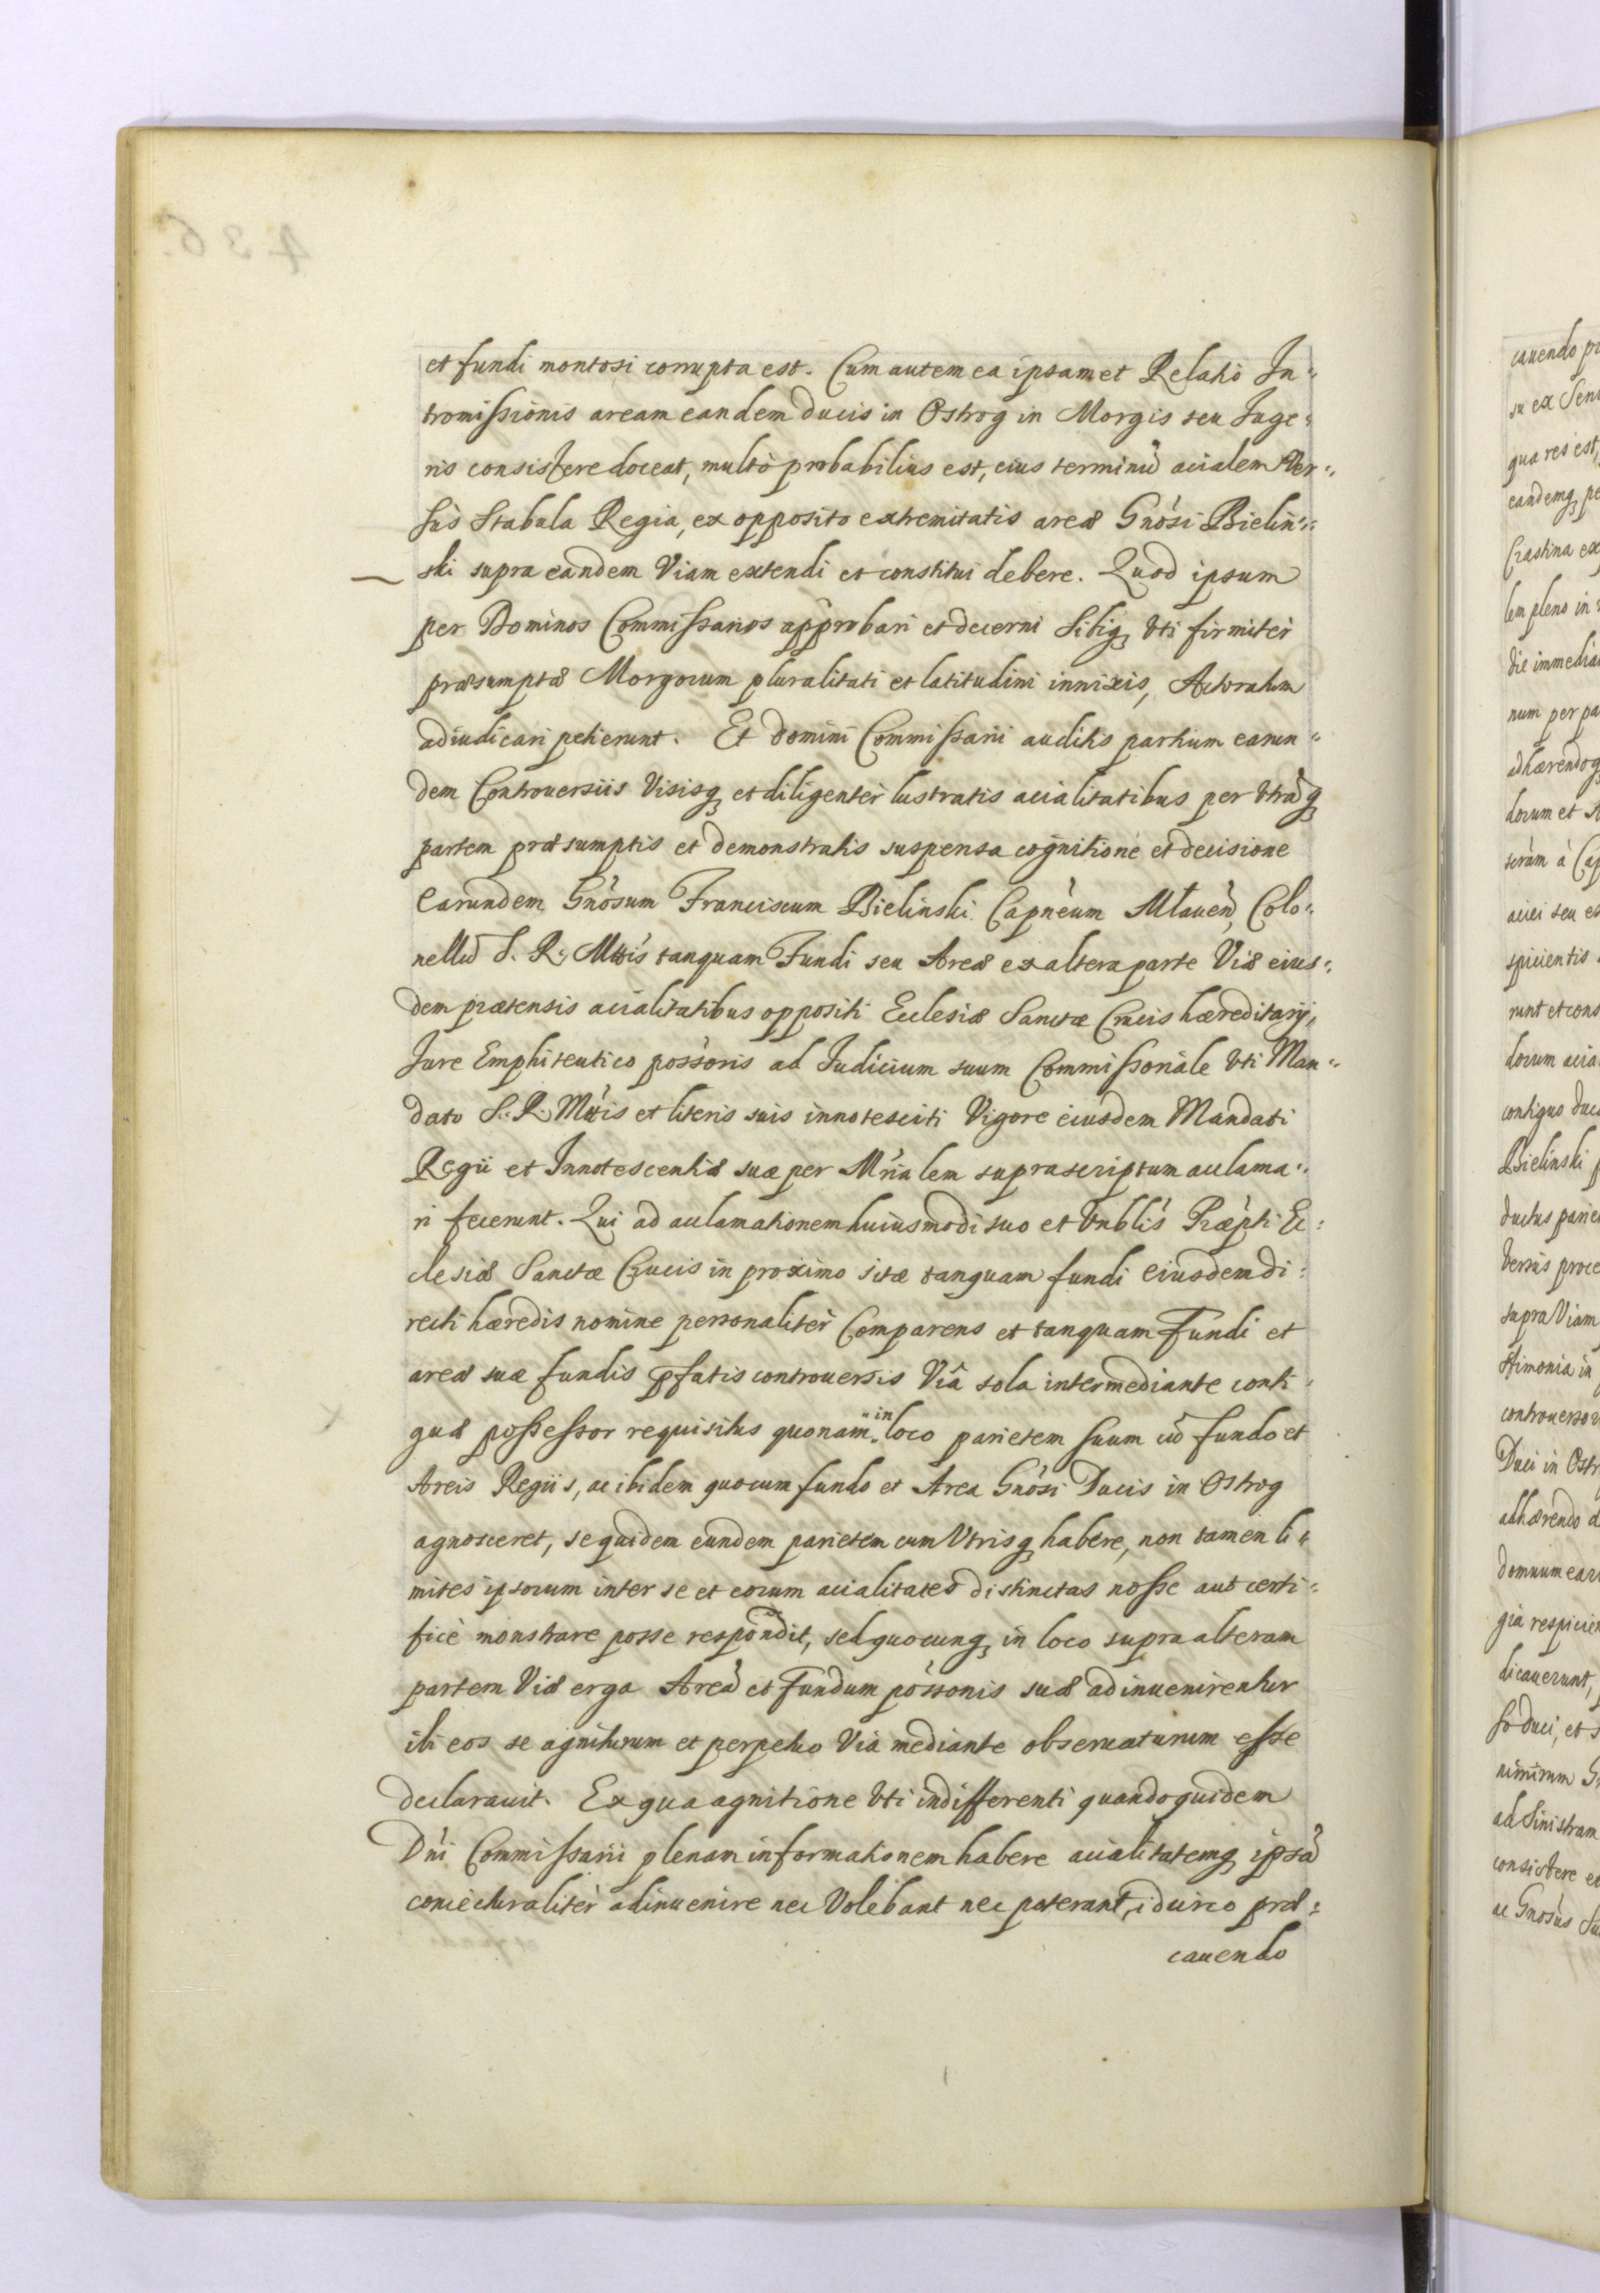 et fundi montosi corrupta est. Cum autem ea ipsamet Relatiò In-
tromissionis aream eandem Ducis in Ostrog in Morgis seu Juge-
ris consistere doceat, multò probabilius est, eius terminũ acialem Ver-
sùs Stabula Regia, ex opposito extremitatis areæ Gnósi Bielin-
ski supra eandem Viam extendi et constitui debere. Quod ipsum
per Dominos Commissarios approbari et decerni Sibiq; Vti firmiter
præsumptæ Morgorum pluralitati et latitudini innixis, Actoratum
adiudicari petierunt. Et Domini Commissarii auditis partium earun-
dem Controuersiis Visisq; et diligentèr lustratis acialitatibus per Vtrãq;
partem præsumptis et demonstratis suspensa cognitione et decisione
earundem Gnósum Franciscum Bielinski Capnéum Mlaueñ, Colo-
nellũ S. R. Mttis tanquam Fundi seu Areæ ex altera parte Viæ eius-
dem prætensis acialitatibus oppositi Ecclesiæ Sanctæ Crucis hæreditarij,
Jure Emphiteutico possóris ad Judicium suum Commissoriale Vti Man-
dato S. R. Mttis et literis suis innotesciti Vigore eiusdem Mandati
Regii et Innotescentiæ suæ per Mrialem suprascriptum acclama-
ri fecerunt. Qui ad acclamationem huiusmodi suo et Vnblis Præpti Ec-
clesiæ Sanctæ Crucis in proximo sitæ tanquam fundi eiusdem di-
recti hæredis nomine personalitèr Comparens et tanquam Fundi et
areæ suæ fundis pfatis controuersis Viâ sola intermediante conti-
guæ possessor requisitus quonam in loco parietem suum cũ fundo et
Areis Regiis, ac ibidem quocum fundo et Area Gnósi Ducis in Ostrog
agnosceret, se quidem eundem parietem cum Vtrisq; habere, non tamen li-
mites ipsorum inter se et eorum acialitates distinctas nosse aut certi-
ficè monstrare posse respondit, sed quocunq; in loco supra alteram
partem Viæ erga Areã et Fundum possónis suæ adinuenirentur
ibi eos se agniturum et perpetuo Via mediante obseruaturum esse
declarauit. Ex qua agnitione Vti indifferenti quandoquidem
Dni Commissarii plenam informationem habere acialitatemq; ipsã
coniecturalitèr adinuenire nec Volebant nec poterant, idcirco præ-
cauendo